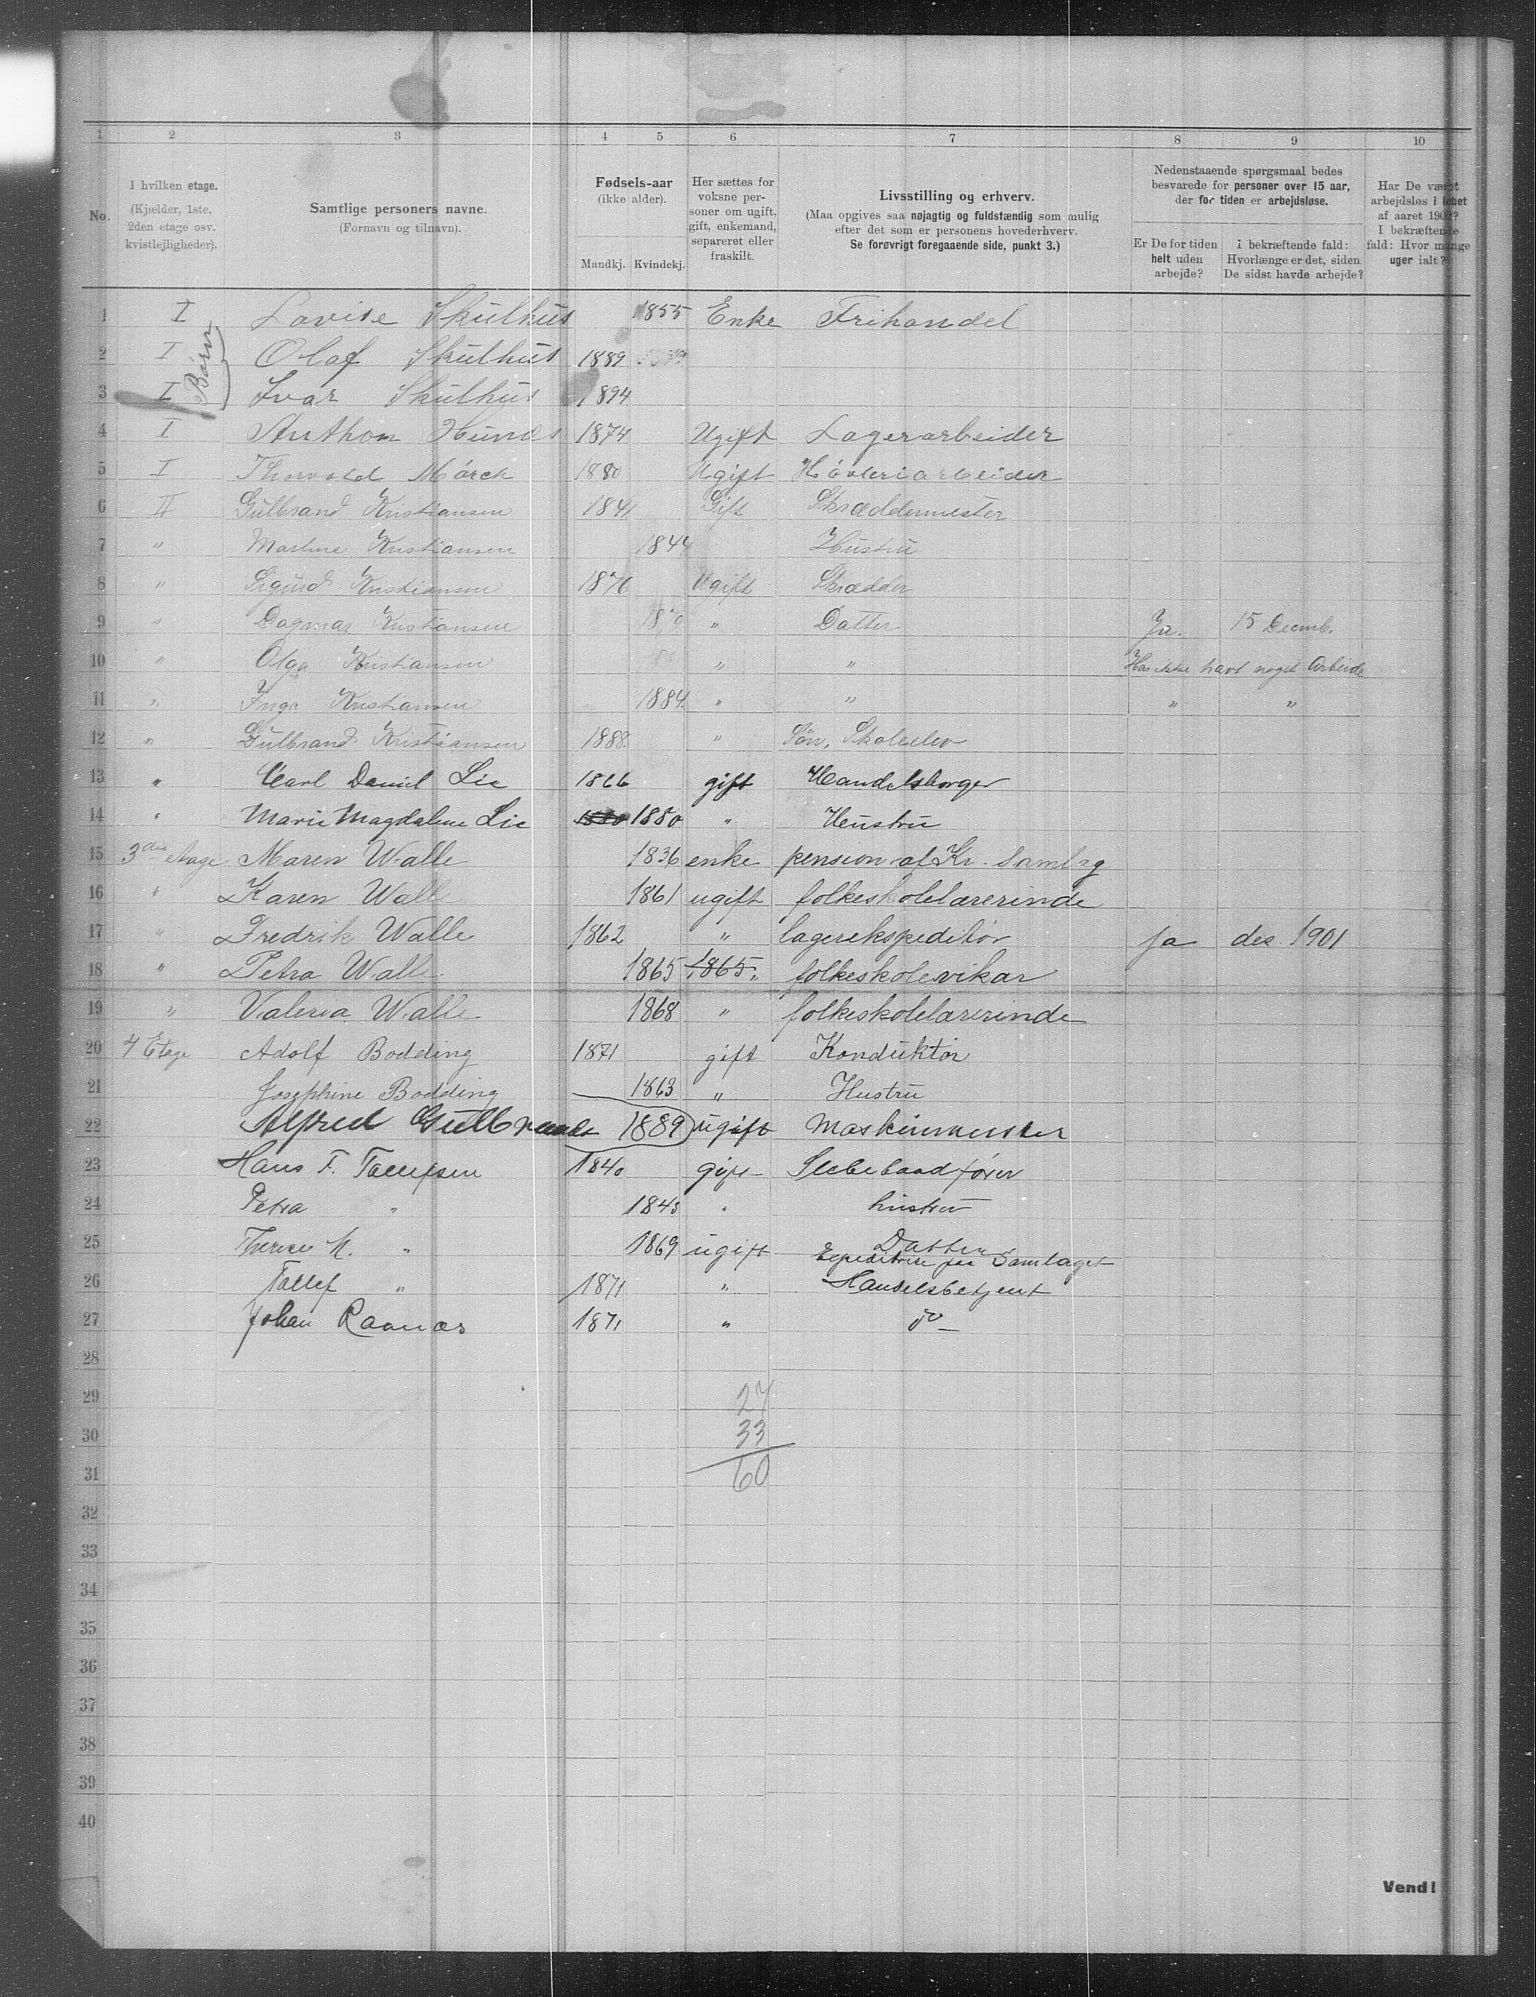 1 2 3 4 5 6 7 8 9 10
No.
I hvilken etage. (Kjælder, 1ste, 2den etage osv. kvistlejligheder).
Samtlige personers navne. (Fornavn og tilnavn).
Fødsels-aar (ikke alder). Mandkj. Kvindekj.
Her sættes for voksne personer om ugift, gift, enkemand, separeret eller fraskilt.
Livsstilling og erhverv. (Maa opgives saa nøjagtig og fuldstændig som mulig efter det som er personens hovederhverv. Se forøvrigt foregaaende side, punkt 3.)
Nedenstaaende spørgsmaal bedes besvarede for personer over 15 aar, der for tiden er arbejdsløse.
Er De for tiden helt uden arbejde?
i bekræftende fald: Hvorlænge er det, siden De sidst havde arbejde?
Har De været arbejdsløs i løbet af aaret 1902? I bekræftende fald: Hvor mange uger ialt?
1 I Lovise Skulhus 1855 Enke Frihandel
Børn
2 I Olaf Skulhus 1889
3 I Ivar Skulhus 1894
4 I Anthon 1874 Ugift Lagerarbeider
5 I Thorvald Mörck 1880 Ugift Høvleriarbeider
6 II Gulbrand Kristiansen 1841 Gift Skræddermester
7 " Martine Kristiansen 1844 Hustru
8 " Sigurd Kristiansen 1876 Ugift Skrædder
9 " Dagmar Kristiansen " Datter Ja. 15 Decmb.
10 " Olga Kristiansen " " Har ikke havt noget Arbeide
11 " Inga Kristiansen 1884 " " " "
12 " Gulbrand Kristiansen 1888 " Søn, Skoleelev
13 " Carl Daniel Lie 1866 gift Handelsborger
14 " Marie Magdalene Lie 1880 1880 " Hustru
15 3die etage Maren Walle 1836 enke pension af Kr. Samlag
16 " Karen Walle 1861 ugift folkeskolelærerinde
17 " Fredrik Walle 1862 " lagerekspeditør ja des 1901
18 " Petra Walle 1865 1865 " folkeskolevikar
19 " Valeria Walle 1868 " folkeskolelærerinde
20 4 Etage Adolf Bodding 1871 gift Konduktør
21 Josephine Bodding 1863 " Hustru
22 Alfred 1889 ugift Maskinmester
23 Hans F. Tallefsen 1840 gift Slebebaadfører
24 Petra " 1843 " hustru
25 Therese M. " 1869 ugift Datter
Expeditrise paa Samlaget
26 Tallef " 1871 " Handelsbetjent
27 Johan Raanæs 1871 " do
28
29 27
30 33
31 60
32
33
34
35
36
37
38
39
40
Vend!